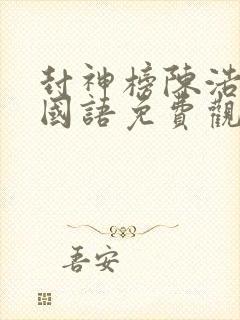 封神榜陳浩
國語免費觀
吾安